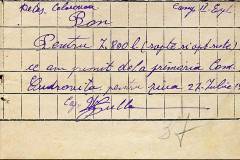 Deleg. Colonenen Camp. II. Expl.
Bon
Pentru 7.800 l (șapte si opt sute)
ce am primit dela primăria Com.
Dudronita pentru ziua 27. Iulie 19
Cap.
37